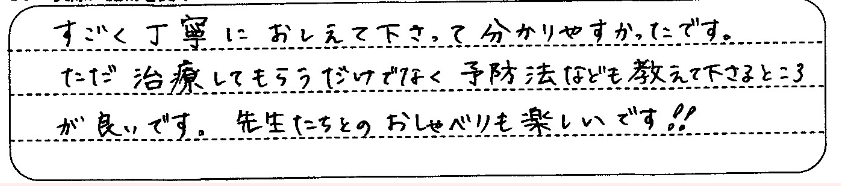 すごく丁寧におしえて下さって分かりやすかったです。
ただ治療してもらうだけでなく予防法なども教えて下さるところ
が良いです。先生たちとのおしゃべりも楽しいです!!